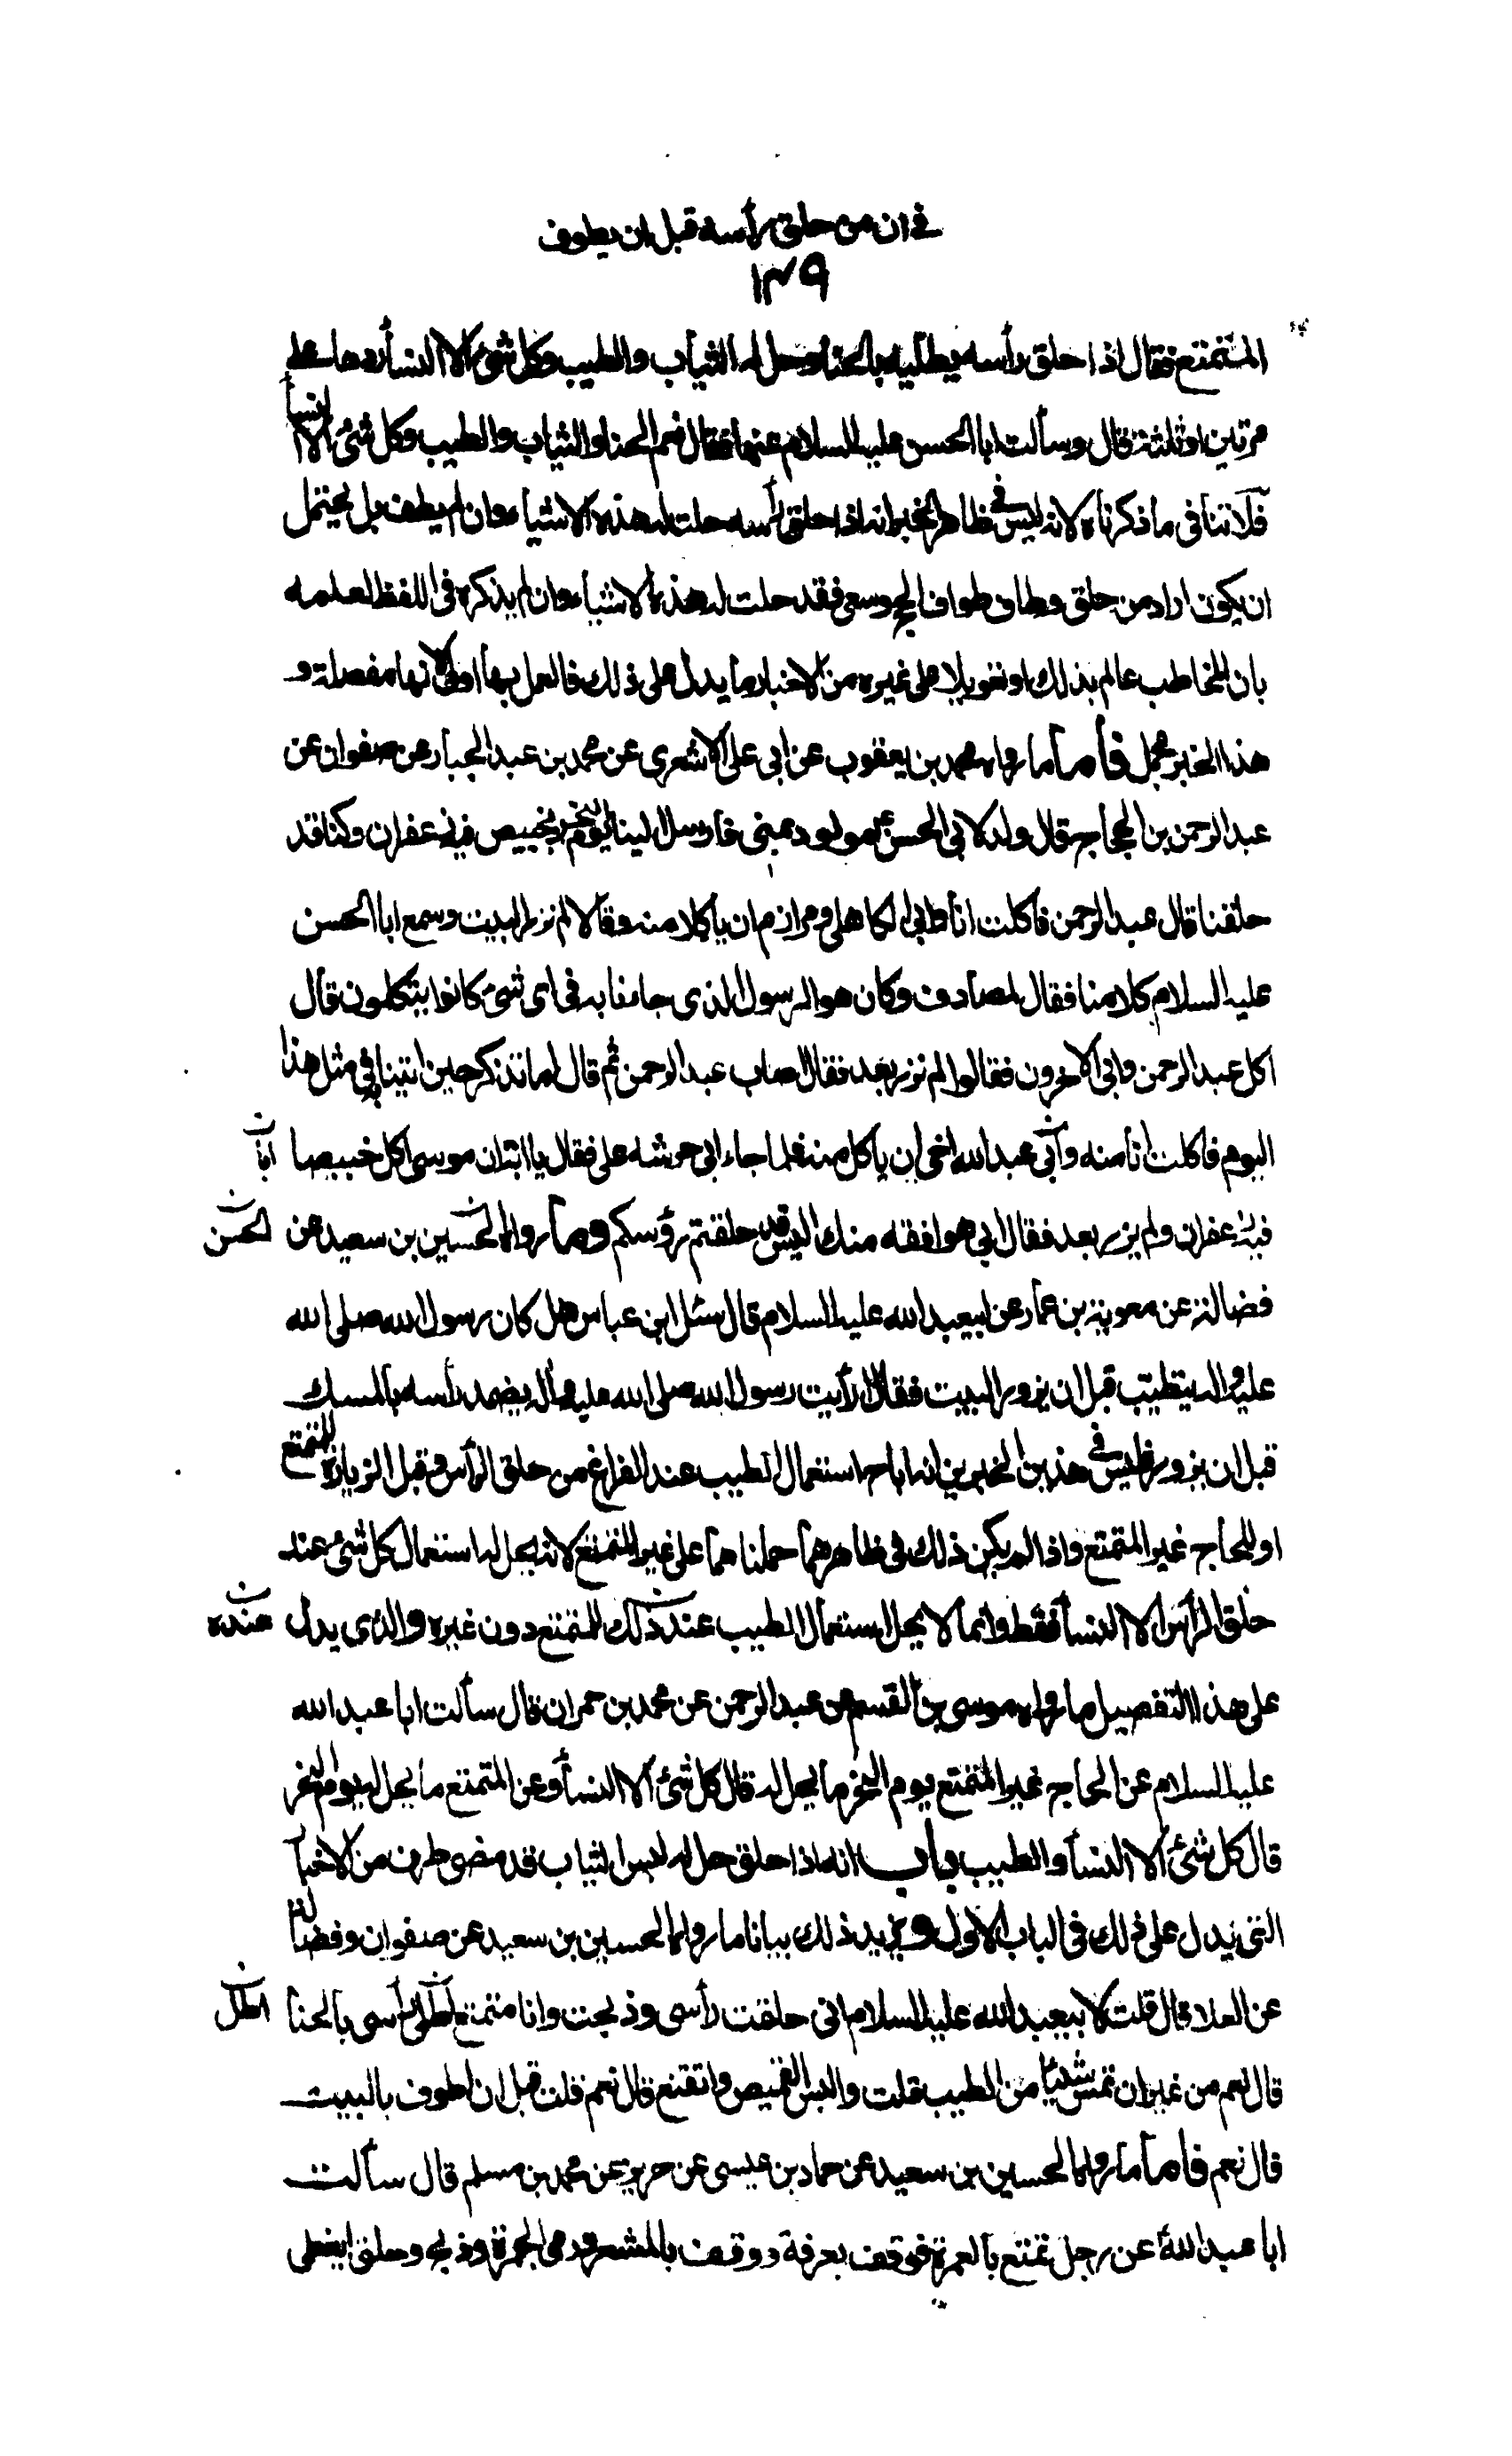 في ان من حلق رأسه قبل ان يطوف
١٣٩
المتمتع فقال اذا حلق رأسه يطليه بالحنا وحل له الثياب والطيب وكل شئ الا النساء رددها على
مرتين او ثلثة قال وسألت ابا الحسن عليه السلام عنها فقال نعم الحنا والثياب والطيب وكل شئ الا النسأ
فلا تنافى ما ذكرناه لانه ليس في ظاهر الخبر انه اذا حلق رأسه حلت له هذه الاشياء وان لم يطف بل يحتمل
ان يكون اراد من حلق وطاف طواف الحج وسعى فقد حلت له هذه الاشياء وان لم يذكره فى اللفظ لعلمه
بان المخاطب عالم بذلك او تعويلا على غيره من الاخبار ما يدل على ذلك فالعمل بها اولى لانها مفصلة و
هذا الخبر مجمل فأما ما رواه محمد بن يعقوب عن ابى على الاشعرى عن محمد بن عبد الجبار عن صفوان عن
عبد الرحمن بن الحجاج قال ولد لابى الحسن ع مولود بمنى فارسل الينا يوم النحر بخبيص فيه زعفران وكنا قد
حلقنا قال عبد الرحمن فاكلت انا وابى الكاهلى ومرازم ان ياكلا منه وقالا لم نزر البيت وسمع ابا الحسن
عليه السلام كلامنا فقال لمصادف وكان هو الرسول الذى جاءنا به فى اى شئ كانوا يتكلمون قال
اكل عبد الرحمن وابى الاخرون فقالوا لم نزر بعد فقال اصاب عبد الرحمن ثم قال اما تذكر حين اتينا به فى مثل هذا
اليوم فاكلت أنا منه وأبى عبد الله اخى ان ياكل منه فلما جاء ابى حرشه على فقال يا ابت ان موسى اكل خبيصا
اباه
فيه زعفران ولم يزر بعد فقال ابى هو افقه منك اليس قد حلقتم رؤسكم وما رواه الحسين بن سعيد عن
الحسن
فضالة عن معوية بن عمار عن ابيعبد الله عليه السلام قال سئل ابن عباس هل كان رسول الله صلى الله
عليه واله يتطيب قبل ان يزور البيت فقال رأيت رسول الله صلى الله عليه وآله يضمد رأسه بالمسك
قبل ان يزور فليس في هذين الخبرين انه اباح استعمال الطيب عند الفراغ من حلق الرأس وقبل الزيارة للمتمتع
او للحاج غير المتمتع واذا لم يكن ذلك فى ظاهرهما حملناهما على غير المتمتع لانه يحل له استعمال كل شئ عند
حلق الرأس الا النسأ فقط وانما لا يحل استعمال الطيب عند ذلك للمتمتع دون غيره والذى يدل
عنده
على هذا التفصيل ما رواه موسى بن القسم عن عبد الرحمن عن محمد بن حمران قال سألت ابا عبد الله
عليه السلام عن الحاج غير المتمتع يوم النحر ما يحل له قال كل شئ الا النسأ وعن المتمتع ما يحل له يوم النحر
قال كل شئ الا النسأ والطيب باب انه اذا حلق حل له لبس الثياب قد مضى طرف من الاخبار
التى يدل على ذلك فى الباب الاول ويزيد ذلك بيانا ما رواه الحسين بن سعيد عن صفوان وفضالة
عن العلا قال قلت لابيعبد الله عليه السلام انى حلقت رأسى وذبحت وانا متمتع اطلى رأسى بالحنا
اطل
قال نعم من غير ان تمس شيئا من الطيب قلت والبس القميص واتقنع قال نعم قلت قبل ان اطوف بالبيت
قال نعم فأما ما رواه الحسين بن سعيد عن حماد بن عيسى عن حريز عن محمد بن مسلم قال سألت
ابا عبد الله ع عن رجل تمتع بالعمرة فوقف بعرفة ووقف بالمشعر ورمى الجمرة وذبح وحلق ايغطى